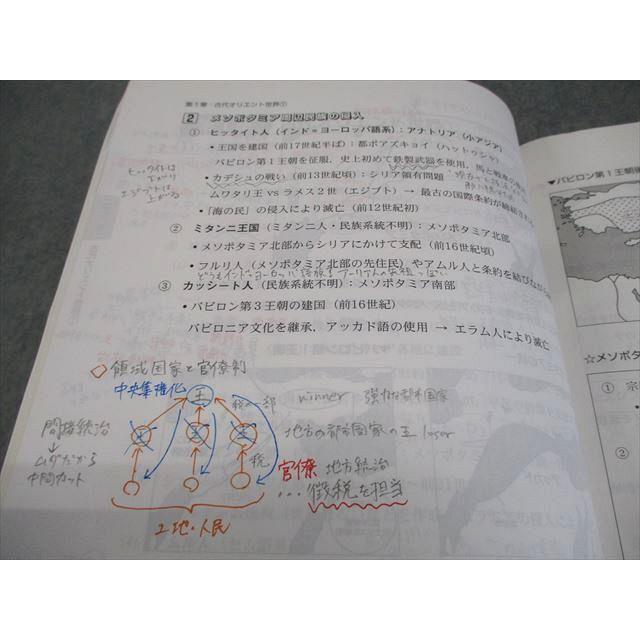 第1章 古代オリエント世界①
2 メソポタミア周辺民族の侵入
① ヒッタイト人（インド＝ヨーロッパ語系）：アナトリア（小アジア）
• 王国を建国（前17世紀半ば）：都ボアズキョイ（ハットゥシャ）
バビロン第1王朝を征服，史上初めて鉄製武器を使用，馬と戦車の
• カデシュの戦い（前13世紀頃）：シリア領有問題
ムワタリ王 vs ラメス2世（エジプト）→ 最古の国際条約が締結される
• 「海の民」の侵入により滅亡（前12世紀初）
ヒッタイトは
下がり
エジプトは
上がる
② ミタンニ王国（ミタンニ人・民族系統不明）：メソポタミア北部
• メソポタミア北部からシリアにかけて支配（前16世紀頃）
• フルリ人（メソポタミア北部の先住民）やアムル人と条約を結びながら
③ カッシート人（民族系統不明）：メソポタミア南部
• バビロン第3王朝の建国（前16世紀）
バビロニア文化を継承，アッカド語の使用 → エラム人により滅亡
◇ 領域国家と官僚制
中央集権化
王
税の一部
winner 強力な都市国家
間接統治
↓
ムダだから
中間カット
王 王 王
地方の都市国家の王 loser
税
官僚 地方統治
… 徴税を担当
土地・人民
▼バビロン第1王朝
☆メソポ
① 宗
②